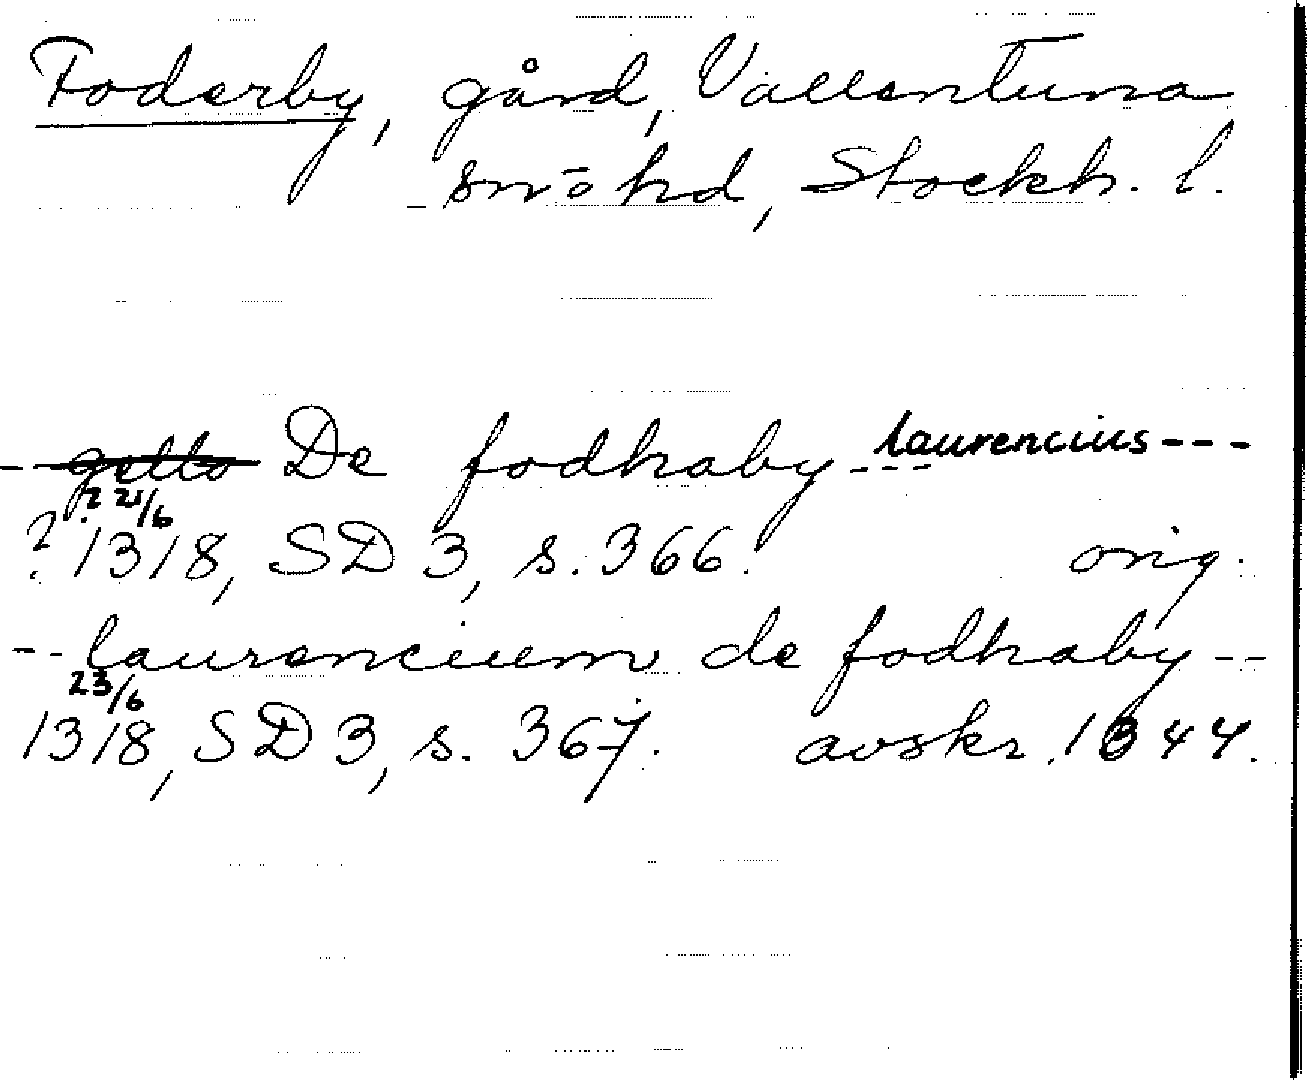 Foderby, gård, Vallentuna
sn o hd, Stockh. l.
-- getto De fodhraby --- laurencius ---
? 21/6
? 1318, SD 3, s. 366. orig.
-- laurencium de fodhraby --
23/6
1318, SD 3, s. 367. avskr. 1344.